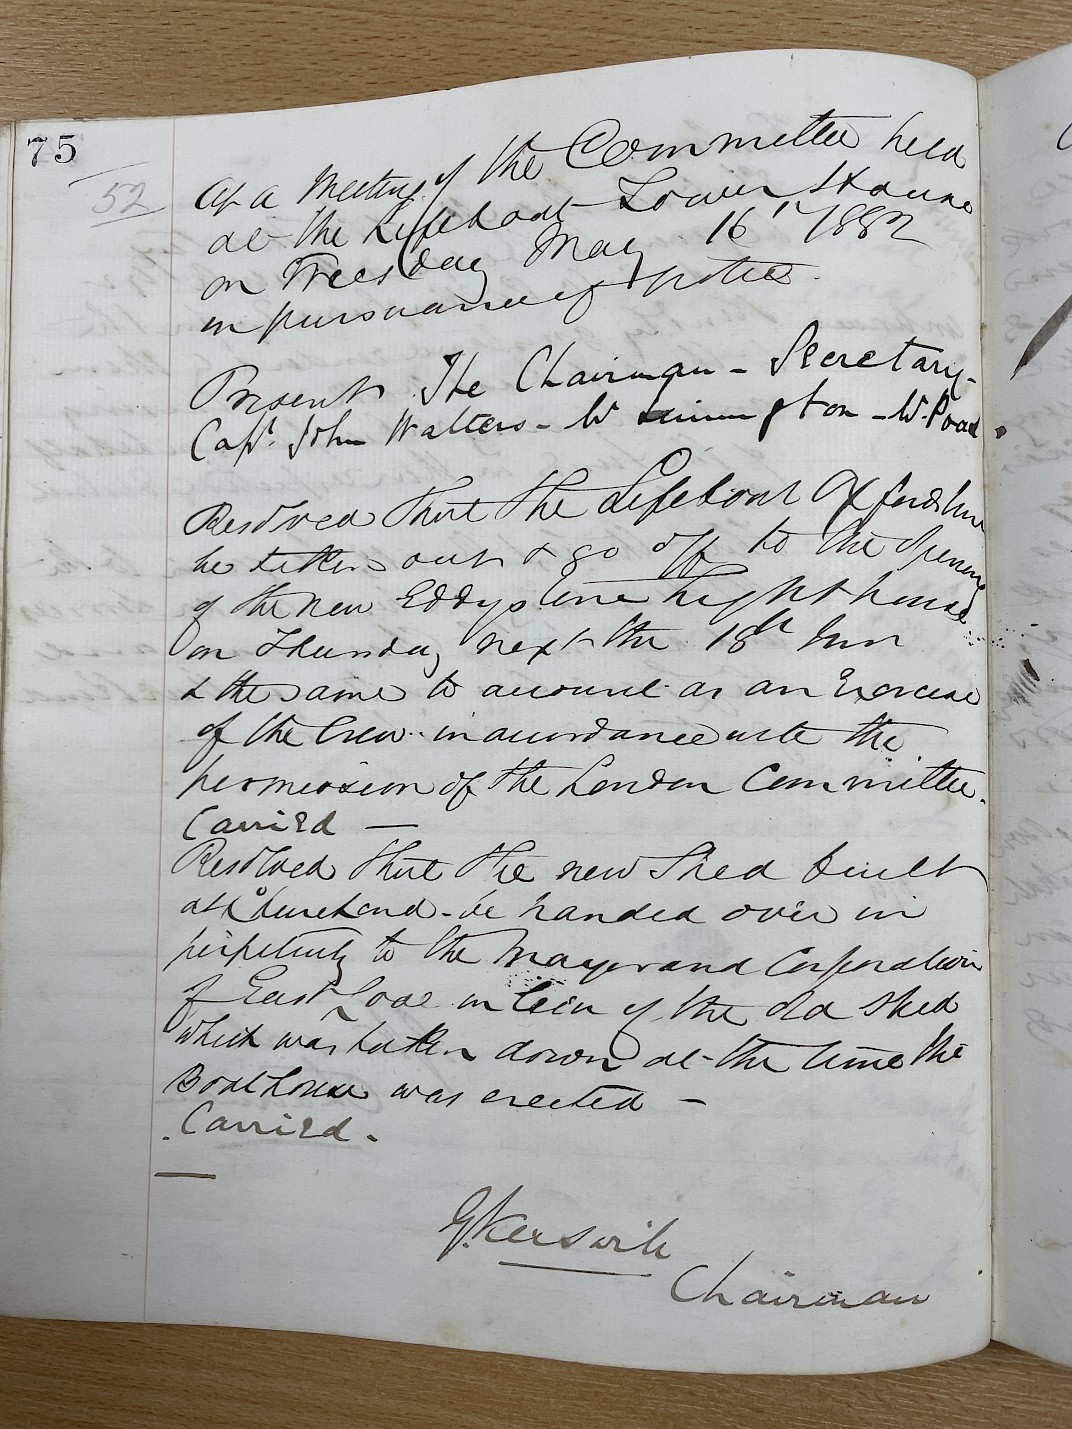 75
52
At a Meeting of the Committee held
at the Lifeboat Tower House
on Tuesday May 16th 1882
in pursuance of notice.
Present The Chairman - Secretary -
Capt. John Walters - W - W. Poad
Resolved that the Lifeboat Oxfordshire
be taken out & go off to the Opening
of the new Eddystone Light house
on Thursday next the 18th Inst
& the same to account as an Exercise
of the Crew in accordance with the
permission of the London Committee.
Carried —
Resolved that the new Shed built
at Churchend - be handed over in
perpetuity to the Mayor and Corporation
of East Looe in lieu of the old Shed
which was taken down at the time the
Boathouse was erected -
Carried.
Chairman